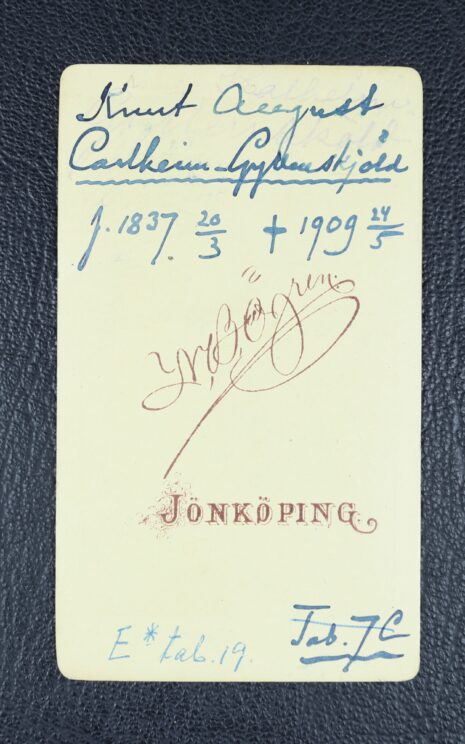 Knut August
Carlheim-Gyllenskjöld
f. 1837 20/3 + 1909 24/5
Ögren.
JÖNKÖPING
E * tab. 19.
Tab. 7 C